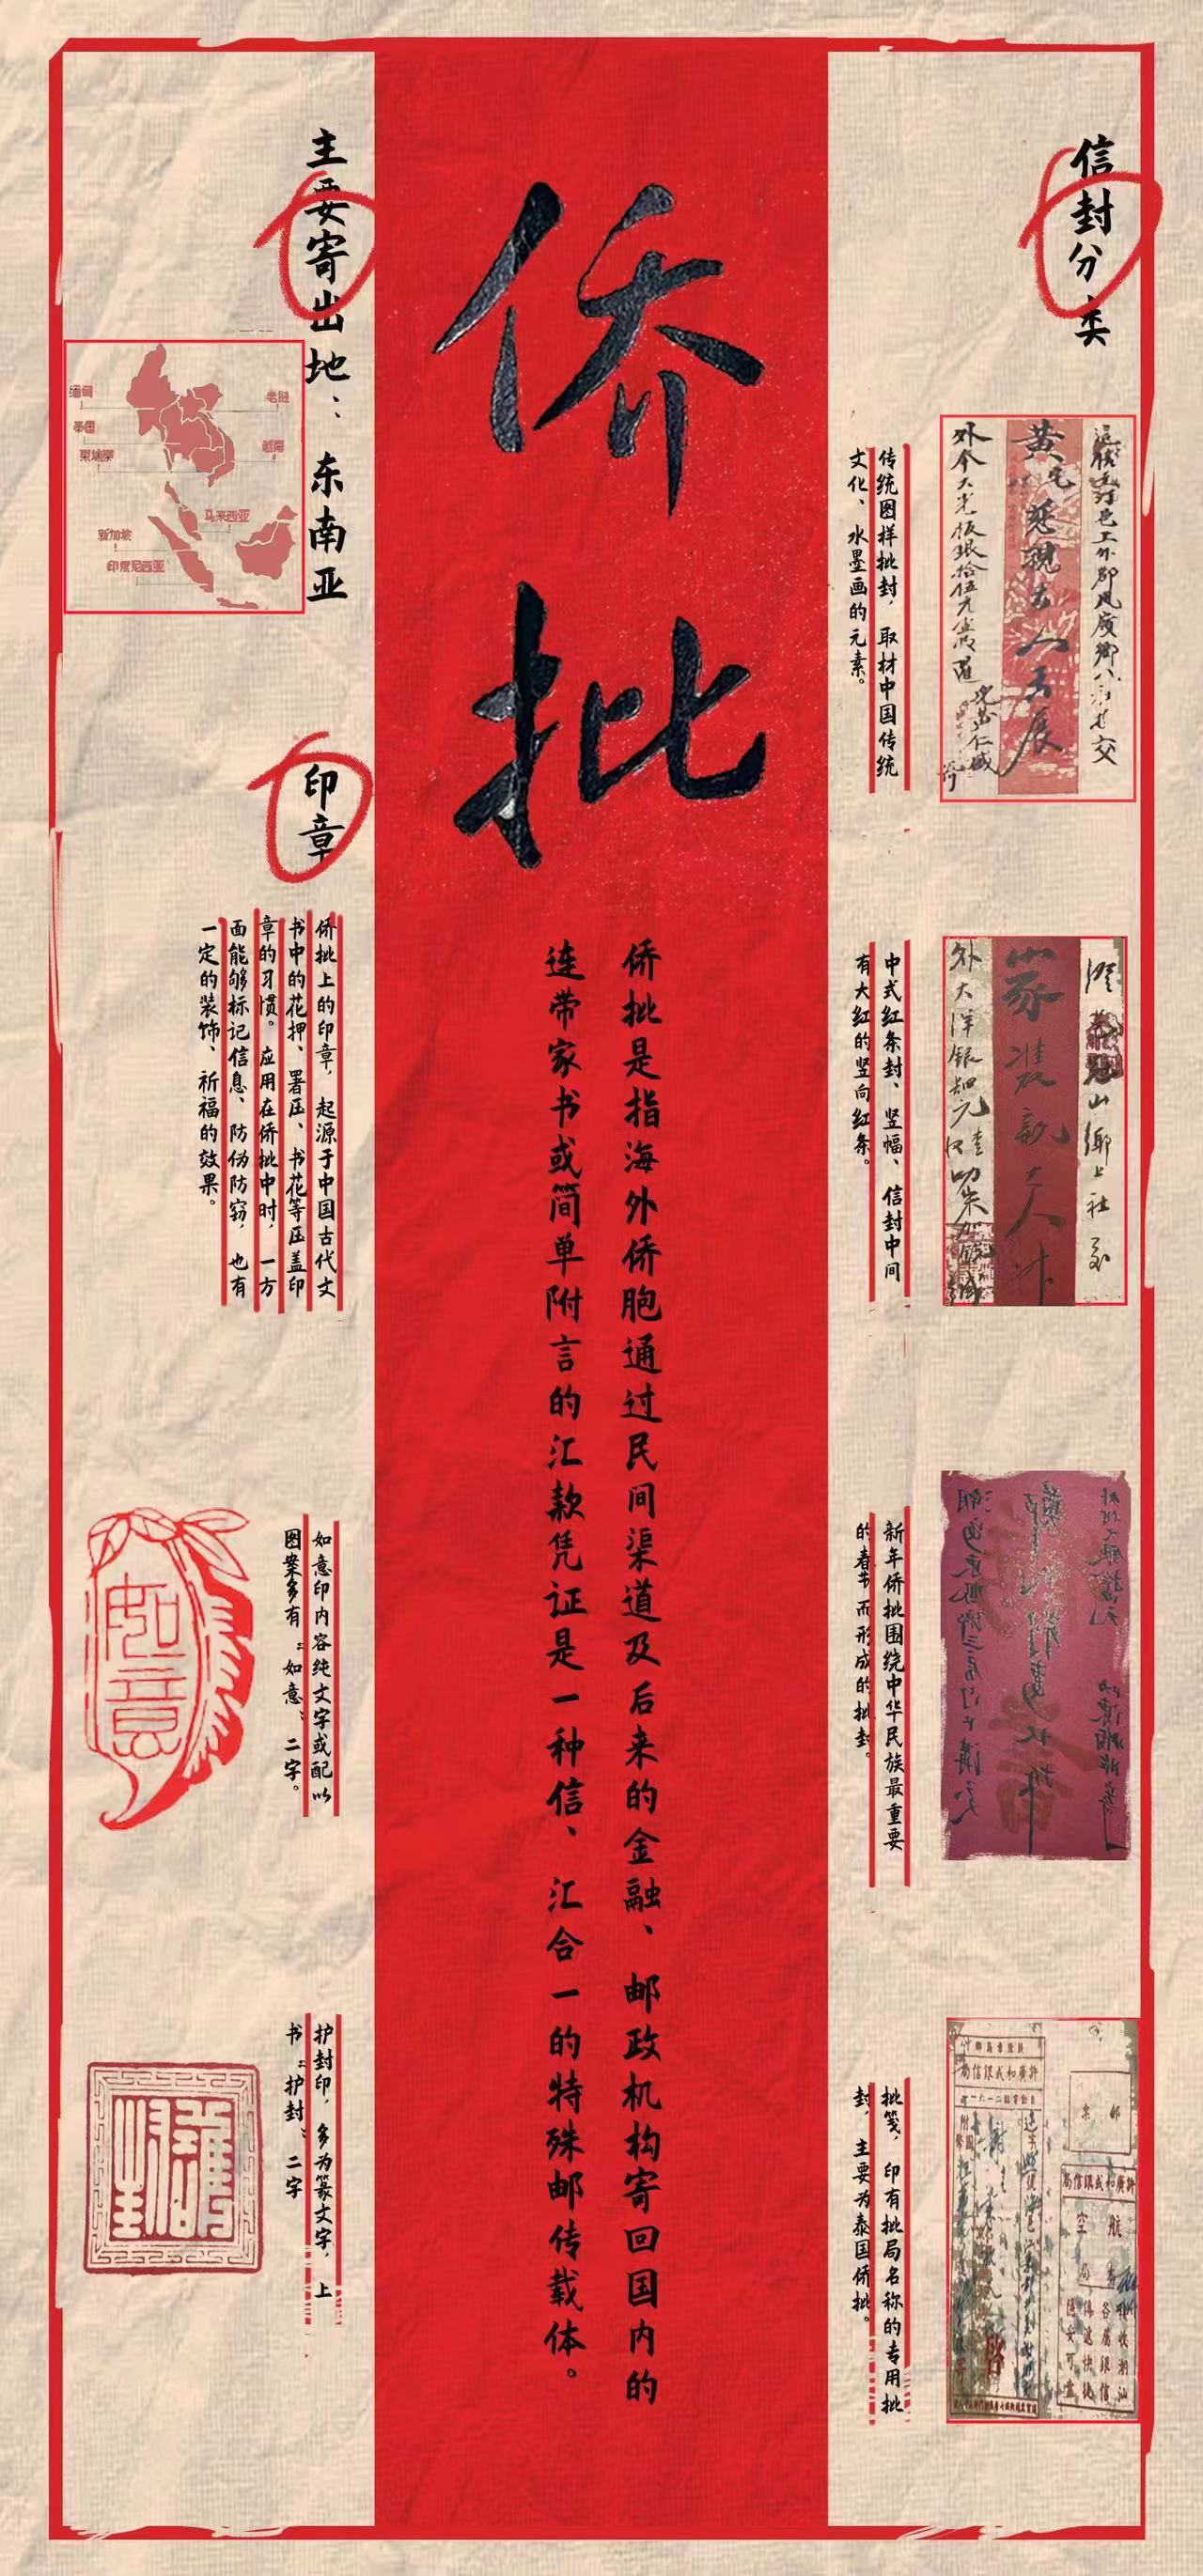 侨批
侨批是指海外侨胞通过民间渠道及后来的金融、邮政机构寄回国内的
连带家书或简单附言的汇款凭证是一种信、汇合一的特殊邮传载体。
信封分类
传统图样批封，取材中国传统
文化、水墨画的元素。
中式红条封、竖幅、信封中间
有大红的竖向红条。
新年侨批围绕中华民族最重要
的春节而形成的批封。
批笺，印有批局名称的专用批
封，主要为泰国侨批。
主要寄出地：东南亚
缅甸
泰国
柬埔寨
老挝
越南
马来西亚
新加坡
印度尼西亚
印章
侨批上的印章，起源于中国古代文
书中的花押、署压、书花等压盖印
章的习惯。应用在侨批中时，一方
面能够标记信息、防伪防窃，也有
一定的装饰、祈福的效果。
如意印内容纯文字或配以
图案多有“如意”二字。
如意
护封印，多为篆文字，上
书“护封”二字
護封
外大洋银
空
航
邮
票